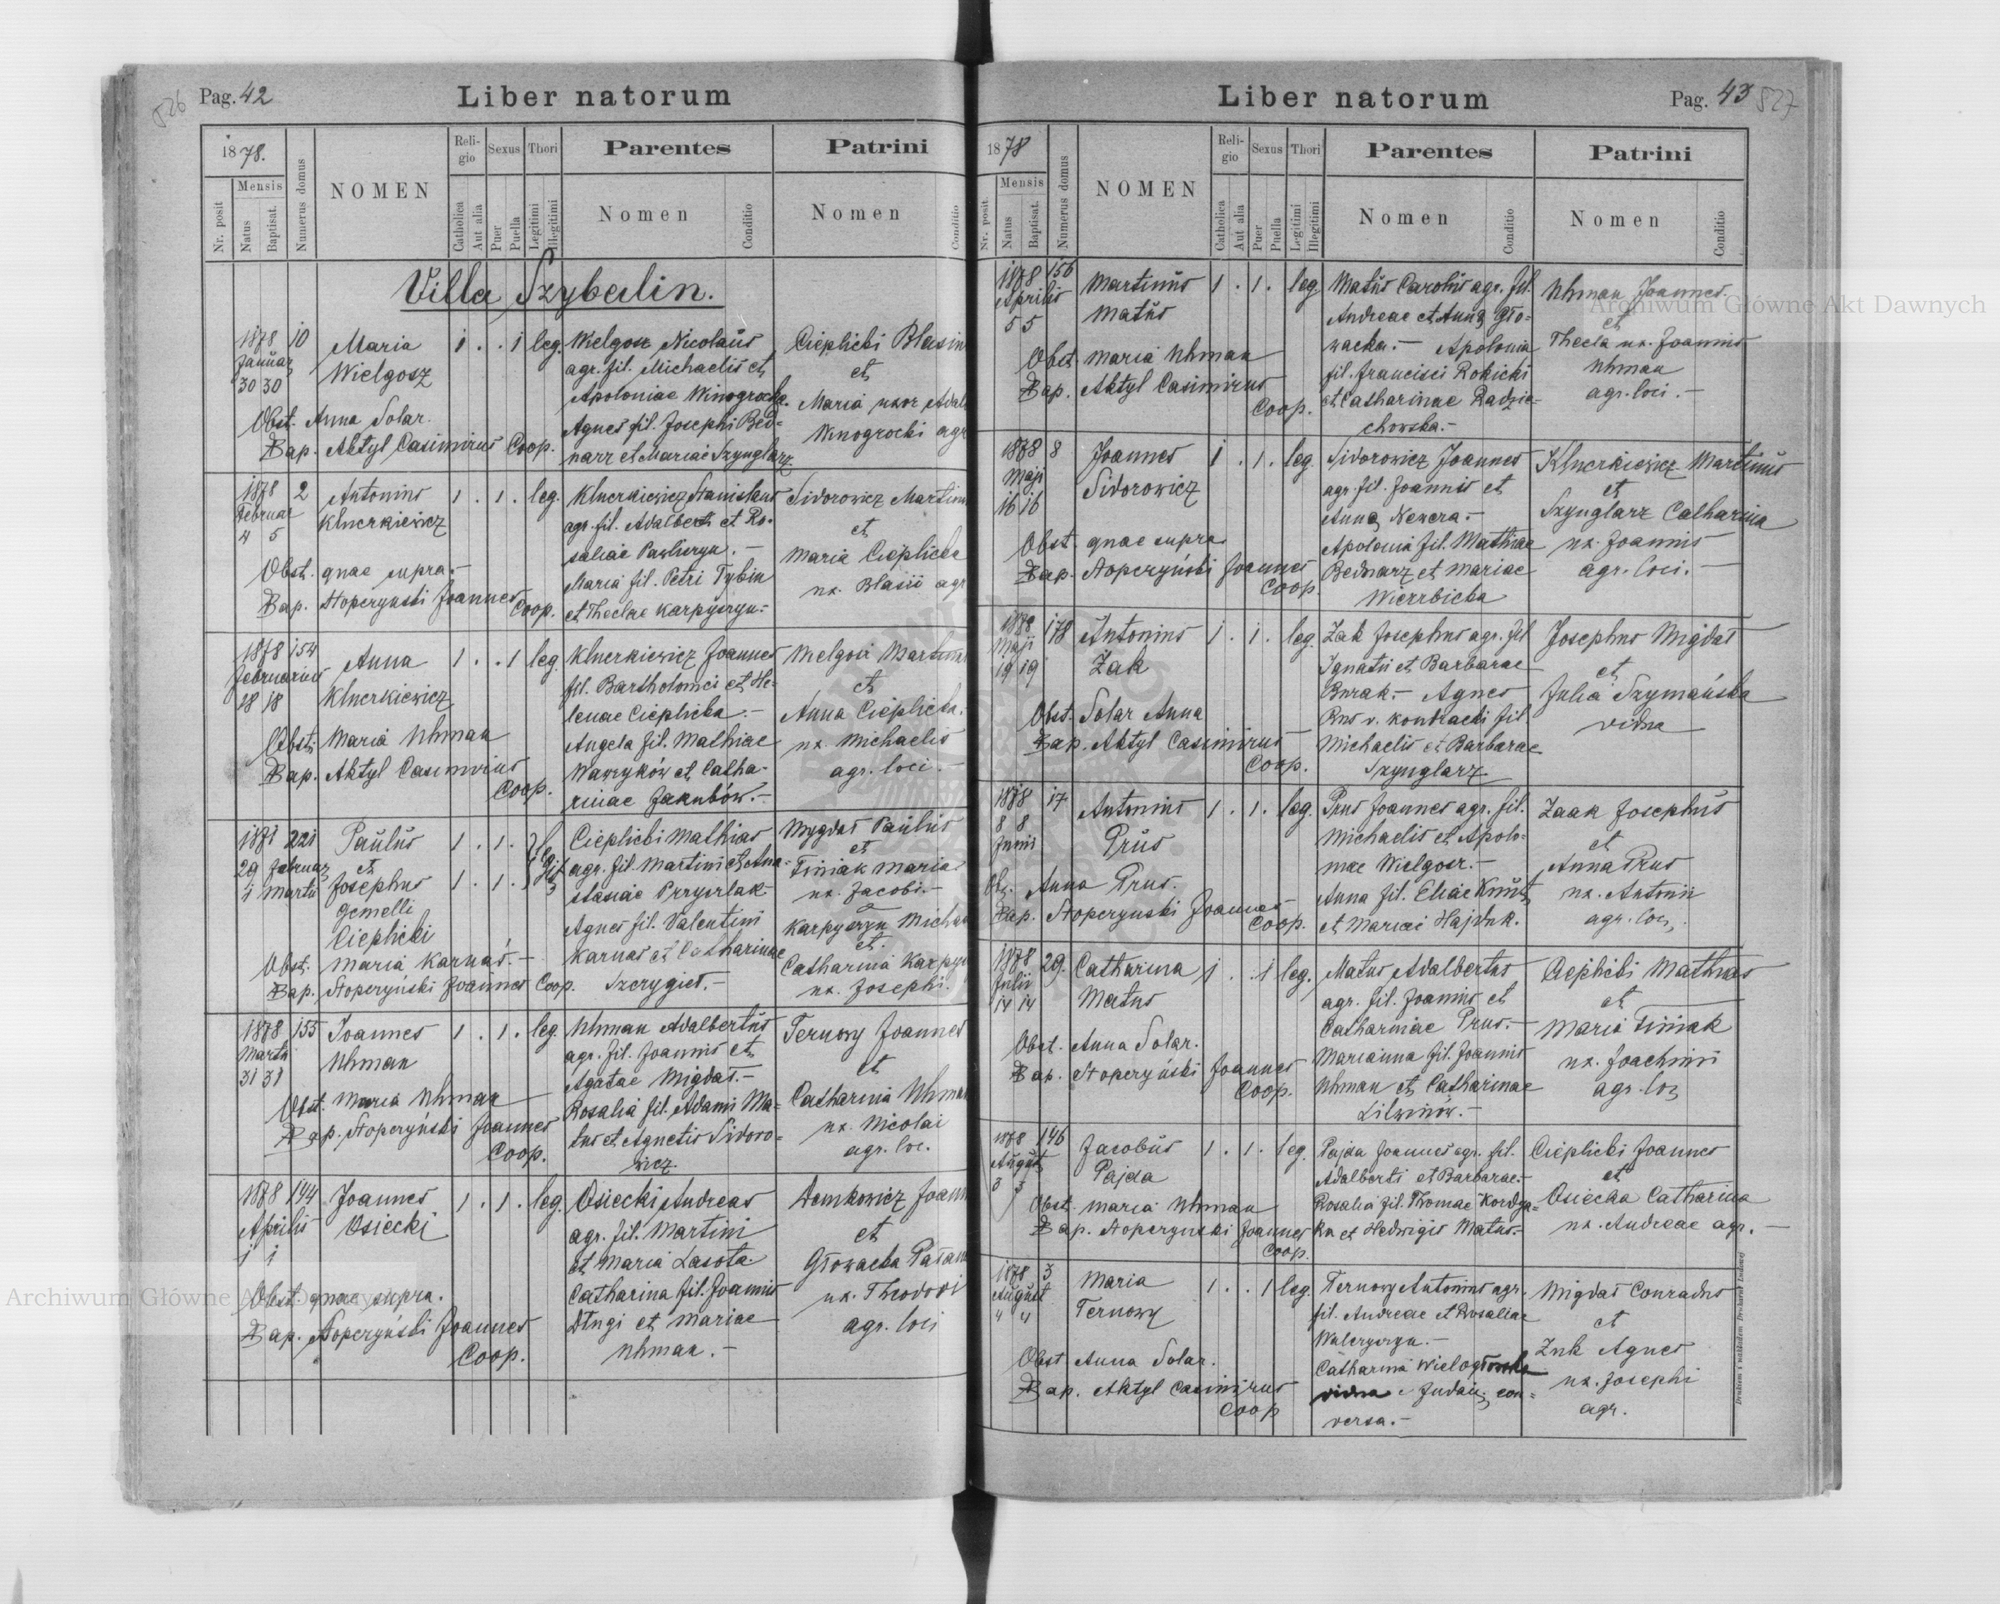 526
Pag. 42
Liber natorum
1878.
Nr. posit
Mensis
Natus
Baptisat.
Numerus domus
NOMEN
Religio
Catholica
Aut alia
Sexus
Puer
Puella
Thori
Legitimi
Illegitimi
Parentes
Nomen
Conditio
Patrini
Nomen
Conditio
Villa Szybalin.
1878 10
Januar
30 30
Maria
Wielgosz
1 . . 1 leg.
Wielgosz Nicolaus
agr. fil. Michaelis et
Apoloniae Winogrocka.
Agnes fil. Josephi Bed-
narz et Mariae Szynglarz
Cieplicki Blasiu
et
Maria uxor Adal
Winogrocki agr
Obst. Anna Solar.
Bap. Aktyl Casimirus Coop.
1878 2
Februar
4 5
Antonius
Klucrkiewicz
1 . 1 . leg.
Klucrkiewicz Stanislaus
agr. fil. Adalberti et Ro-
saliae Pawliczyn. -
Maria fil. Petri Tybin
et Theclae Karpyszyn.-
Sidorowicz Martinu
et
Maria Cieplicka
ux. Blasii agr
Obst. quae supra.-
Bap. Stoperynski Joannes
Coop.
1878 154
Februarius
18 18
Anna
Klucrkiewicz
1 . . 1 leg.
Klucrkiewicz Joannes
fil. Bartholomei et He-
lenae Cieplicka.-
Angela fil. Mathiae
Wawryków et Catha-
rinae Jakubów.-
et
Anna Cieplicka.
ux. Michaelis
agr. loci.-
Obst. Maria Uhman
Bap. Aktyl Casimirus
Coop.
221
29 Februar
4 Martii
Paulus
et
Josephus
Gemelli
Cieplicki
1 . 1 .
1 . 1 .
Cieplicki Mathias
agr. fil. Martini et Ana-
stasiae Przyszlak
Agnes fil. Valentini
Karnas et Catharinae
Szczygieł.-
Mygdas Paulus
et
Finiak Maria
ux. Jacobi.-
Karpyszyn Micha
et.
Catharina Karpys
ux. Josephi.
Obst. Maria Karnas.-
Bap. Stoperynski Joannes Coop.
1878 155
Martii
31 31
Joannes
Uhman
1 . 1 . leg.
Uhman Adalbertus
agr. fil. Joannis et
Agatae Migdas.-
Rosalia fil. Adami Ma-
tus et Agnetis Sidoro-
wicz.
Ternowy Joannes
et
Catharina Uhman
ux. Nicolai
agr. loc.
Obst. Maria Uhman
Bap. Stoperyński Joannes
Coop.
1878 194
Aprilis
1 1
Joannes
Osiecki
1 . 1 . leg.
Osiecki Andreas
agr. fil. Martini
et Maria Lasota.
Catharina fil. Joannis
Długi et Mariae
Uhman.-
Demkowicz Joann
et
Głowacka Paran
ux. Theodori
agr. loci
Obst. quae supra.
Bap. Stoperyński Joannes
Coop.
Liber natorum
Pag. 43
527
1878
Nr. posit.
Mensis
Natus
Baptisat.
Numerus domus
NOMEN
Religio
Catholica
Aut alia
Sexus
Puer
Puella
Thori
Legitimi
Illegitimi
Parentes
Nomen
Conditio
Patrini
Nomen
Conditio
1878 156
Aprilis
5 5
Martinus
Matus
1 . 1 . leg
Matus Carolus agr. fil.
Andreae et Anna Gło-
wacka.- Apolonia
fil. Francisci Rokicki
et Catharinae Radzie-
chowska.-
Uhman Joannes
et
Thecla ux. Joannis
Uhman
agr. loci.-
Obst. Maria Uhman
Bap. Aktyl Casimirus
Coop.
1878 8
Maji
16 16
Joannes
Sidorowicz
1 . 1 . leg.
Sidorowicz Joannes
agr. fil. Joannis et
Anna Newera.-
Apolonia fil. Mathiae
Bednarz et Mariae
Wierzbicka
Klucrkiewicz Martinus
et
Szynglarz Catharina
ux. Joannis
agr. loci.-
Obst. quae supra
Bap. Stoperyński Joannes
Coop.
1878 178
Maji
19 19
Antonius
Żak
1 . 1 . leg.
Zak Josephus agr. fil
Ignatii et Barbarae
Burak.- Agnes
Prus v. Kondracki fil.
Michaelis et Barbarae
Szynglarz
Josephus Migdas
et
Julia Szymańska
vidua
Obst. Solar Anna
Bap. Aktyl Casimirus
Coop.
1878 17
8 8
Junii
Antonius
Prus
1 . 1 . leg.
Prus Joannes agr. fil.
Michaelis et Apolo-
niae Wielgosz.-
Anna fil. Eliae Knut
et Mariae Hajduk.
Zaak Josephus
et
Anna Prus
ux. Antonii
agr. loci.
Ob. Anna Prus.
Bap. Stoperynski Joannes
Coop.
1878 29.
Julii
14 14
Catharina
Matus
1 . . 1 leg.
Matus Adalbertus
agr. fil. Joannis et
Catharinae Prus.-
Marianna fil. Joannis
Uhman et Catharinae
Litwinów.-
Cieplicki Mathias
et
Maria Finiak
ux. Joachimi
agr. loci
Obst. Anna Solar.
Bap. Stoperyński Joannes
Coop.
1878 146
August
3 3
Jacobus
Pajda
1 . 1 . leg.
Pajda Joannes agr. fil.
Adalberti et Barbarae.-
Rosalia fil. Thomae Kordya-
ka et Hedwigis Matus.-
Cieplicki Joannes
et
Osiecka Catharina
ux. Andreae agr.-
Obst. Maria Uhman
Bap. Stoperynski Joannes
Coop.
1878 3
August
4 4
Maria
Ternowy
1 . . 1 leg.
Ternowy Antonius agr.
fil. Andreae et Rosaliae
Waleryszyn.-
Catharina Wielogłowska
vidua e Judais con-
versa.-
Migdas Conradus
et
Żuk Agnes
ux. Josephi
agr.
Obst Anna Solar.
Bap. Aktyl Casimirus
Coop
Archiwum Główne Akt Dawnych
Archiwum Główne Akt Dawnych